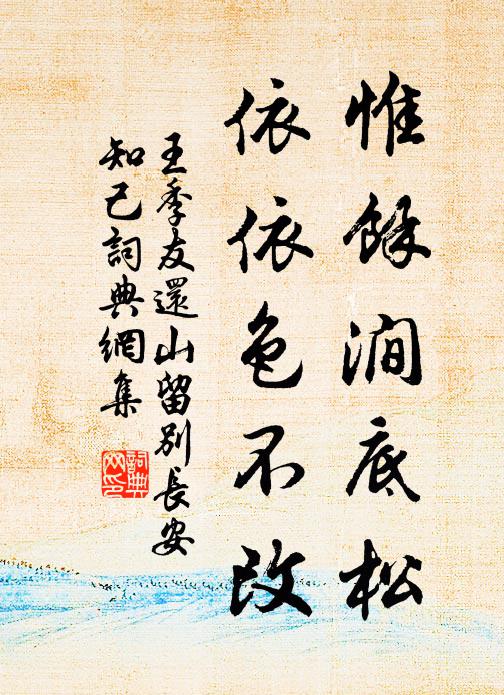 惟餘澗底松
依依色不改
王季友還山留別長安
知己詞典網集
詞典网印